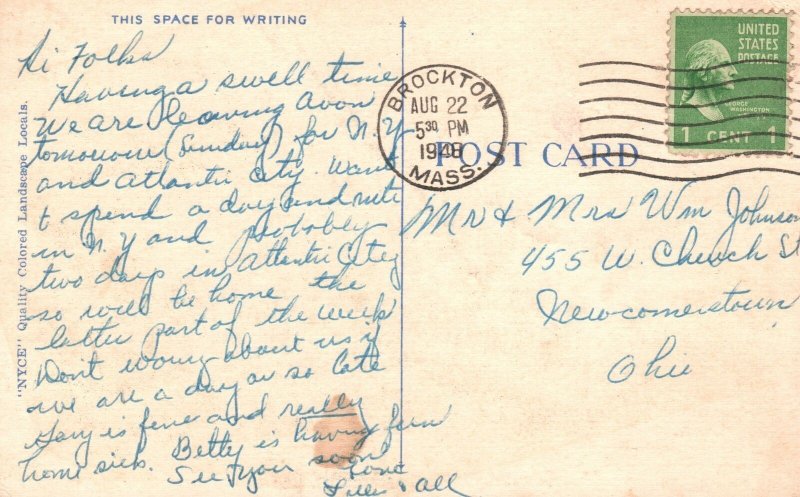 THIS SPACE FOR WRITING
Hi Folks
Having a swell time
We are leaving Avon
tomorrow (Sunday) for N.Y
and Atlantic City. Want
t spend a day and nite
in N.Y and probabley
two days in Atlantic City
so will be home the
latter part of the week
Dont worry about us if
we are a day or so late
Gary is fine and really
home sick. Betty is having fun
See you soon
Love
& all
"NYCE" Quality Colored Landscape Locals.
BROCKTON
AUG 22
5 30 PM
1948
MASS.
UNITED
STATES
POSTAGE
GEORGE
WASHINGTON
1 CENT 1
POST CARD
Mr & Mrs Wm Johnson
455 W. Church St
Newcomerstown
Ohio